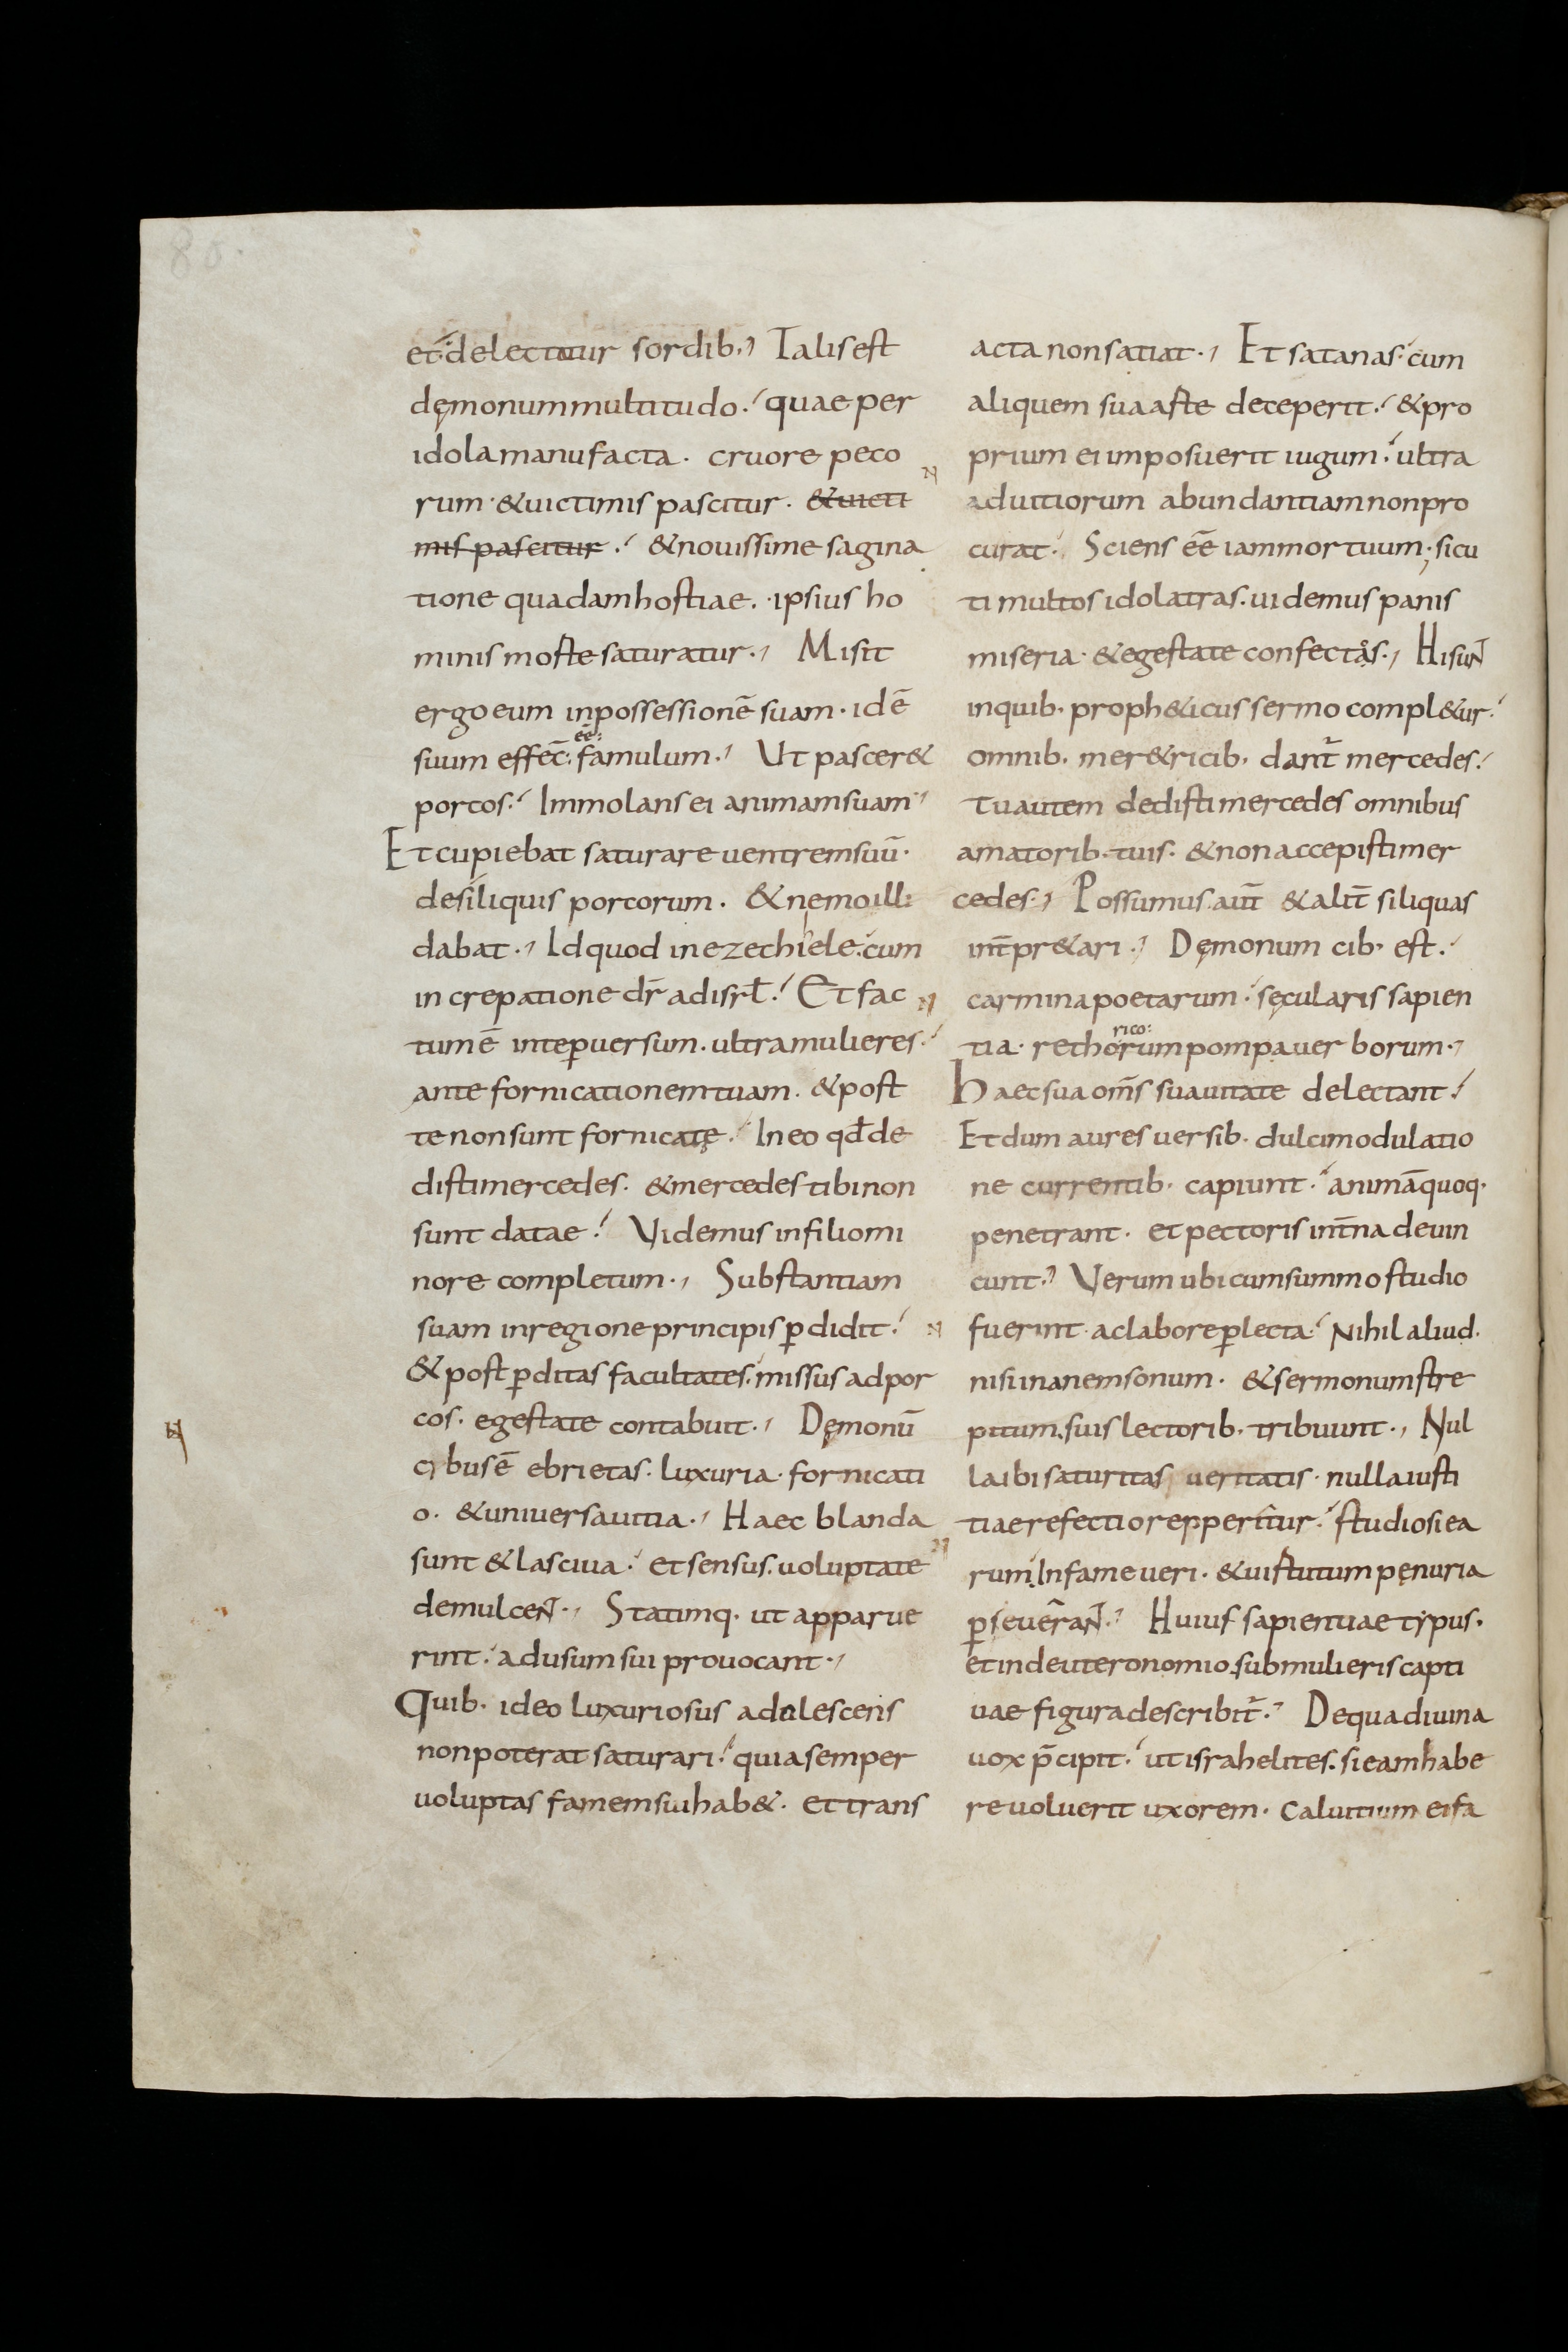 86.
et delectatur sordib., Talis est
dęmonum multitudo. quae per
idola manufacta. cruore peco
rum. & uictimis pascitur. & uicti
mis pascitur. & nouissime sagina
tione quadam hostiae. ipsius ho
minis morte saturatur., Misit
ergo eum in possessionē suam. id ē
suum effec: ēē: famulum., Ut pascer&
porcos. Immolans ei animam suam,
Et cupiebat saturare uentrem suū.
de siliquis porcorum. & nemo illi
dabat., Id quod in ezechiele cum
increpatione dr̄ ad isrł. Et fac
tum ē in te peruersum. ultra mulieres.
ante fornicationem tuam. & post
te non sunt fornicatę. In eo qđ de
disti mercedes. & mercedes tibi non
sunt datae. Videmus in filio mi
nore completum., Substantiam
suam in regione principis ꝑdidit.
& post ꝑditas facultates. missus ad por
cos. egestate contabuit., Dęmonū
cybus ē ebrietas. luxuria. fornicati
o. & uniuersa uitia., Haec blanda
sunt & lasciua. et sensus. uoluptate
demulcent., Statimq. ut apparue
rint. ad usum sui prouocant.,
Quib. ideo luxuriosus adulescens
non poterat saturari. quia semper
uoluptas famem sui hab&. et trans
acta non satiat., Et satanas cum
aliquem sua arte deceperit. & pro
prium ei imposuerit iugum. ultra
ad uitiorum abundantiam non pro
curat. Sciens ēē iam mortuum; sicu
ti multos idolatras. uidemus panis
miseria. & egestate confectos., Hi sunt
in quib. proph&icus sermo compl&ur.
omnib. mer&ricib. dant̄ mercedes.
Tu autem dedisti mercedes omnibus
amatorib. tuis. & non accepisti mer
cedes., Possumus aut̄ & alit̄ siliquas
int̄pr&ari., Dęmonum cib. est.
carmina poetarum. sęcularis sapien
tia. rethorum rico: pompa uerborum.,
Haec sua om̄s suauitate delectant.
Et dum aures uersib. dulci modulatio
ne currentib. capiunt. animā quoq.
penetrant. et pectoris int̄na deuin
cunt., Verum ubi cum summo studio
fuerint. ac labore ꝑlecta. Nihil aliud.
nisi inanem sonum. & sermonum stre
pitum. suis lectorib. tribuunt., Nul
la ibi saturitas ueritatis. nulla iusti
tiae refectio repperitur. studiosi ea
rum. In fame ueri. & uirtutum pęnuria
ꝑseuerant., Huius sapientiae typus.
et in deuteronomio. sub mulieris capti
uae figura describit̄., De qua diuina
uox p̄cipit. ut israhelites. si eam habe
re uoluerit uxorem. caluitium ei fa